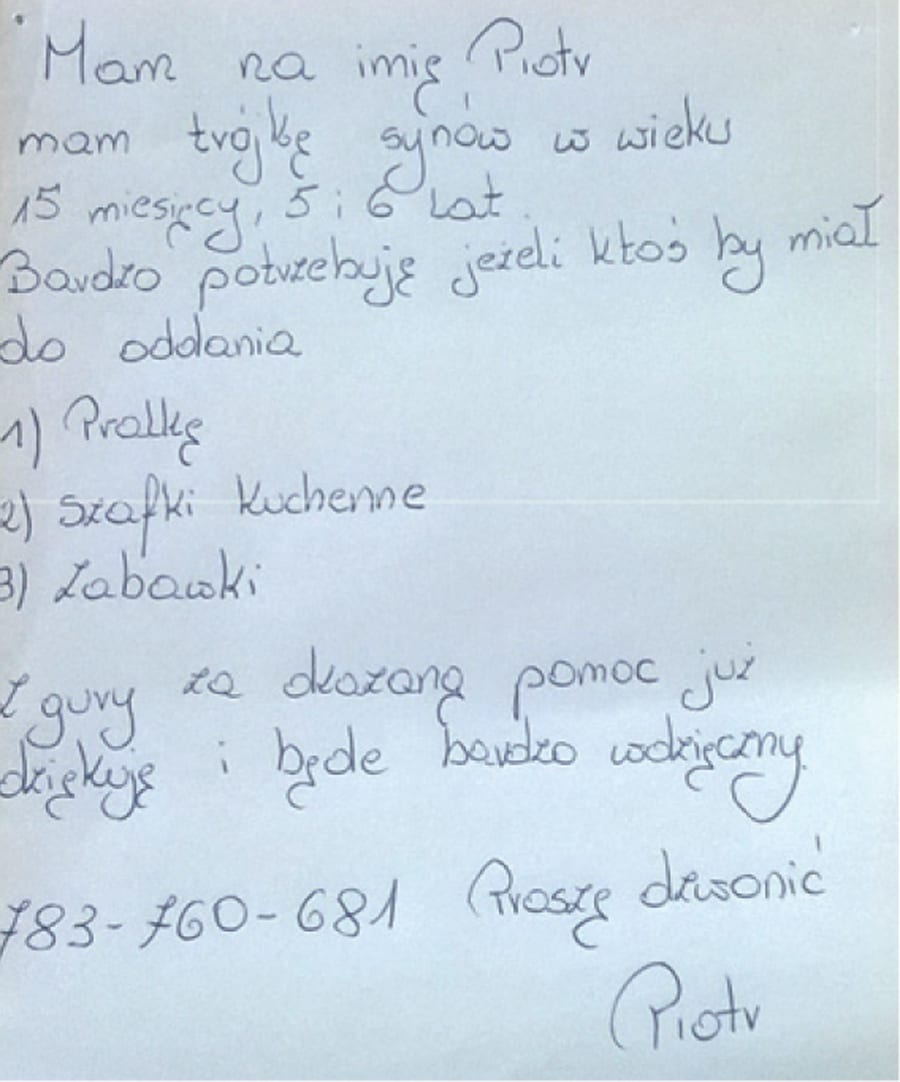 Mam na imię Piotr
mam trójkę synów w wieku
15 miesięcy, 5 i 6 lat.
Bardzo potrzebuję jeżeli ktoś by miał
do oddania
1) Pralkę
2) Szafki kuchenne
3) Zabawki
Z gury za okazaną pomoc już
dziękuję i będe bardzo wdzięczny.
783-760-681 Proszę dzwonić
Piotr